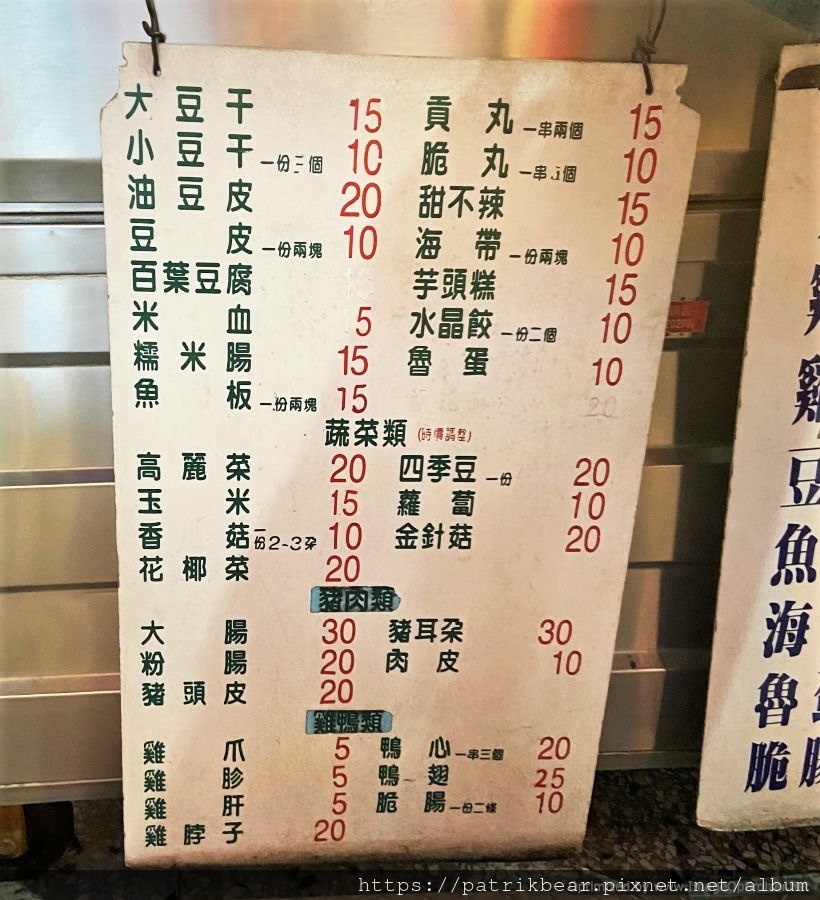 大豆干 15 貢丸 一串兩個 15
小豆干 一份三個 10 脆丸 一串 個 10
油豆皮 20 甜不辣 15
豆皮 一份兩塊 10 海帶 一份兩塊 10
百葉豆腐 芋頭糕 15
米血 5 水晶餃 一份二個 10
糯米腸 15 魯蛋 10
魚板 一份兩塊 15
蔬菜類 (時價調整)
高麗菜 20 四季豆 一份 20
玉米 15 蘿蔔 10
香菇 一份2-3朵 10 金針菇 20
花椰菜 20
豬肉類
大腸 30 豬耳朵 30
粉腸 20 肉皮 10
豬頭皮 20
雞鴨類
雞爪 5 鴨心 一串三個 20
雞胗 5 鴨翅 25
雞肝 5 脆腸 一份二條 10
雞脖子 20
雞
豆
魚
海
魯
脆腸
https://patrikbear.pixnet.net/album